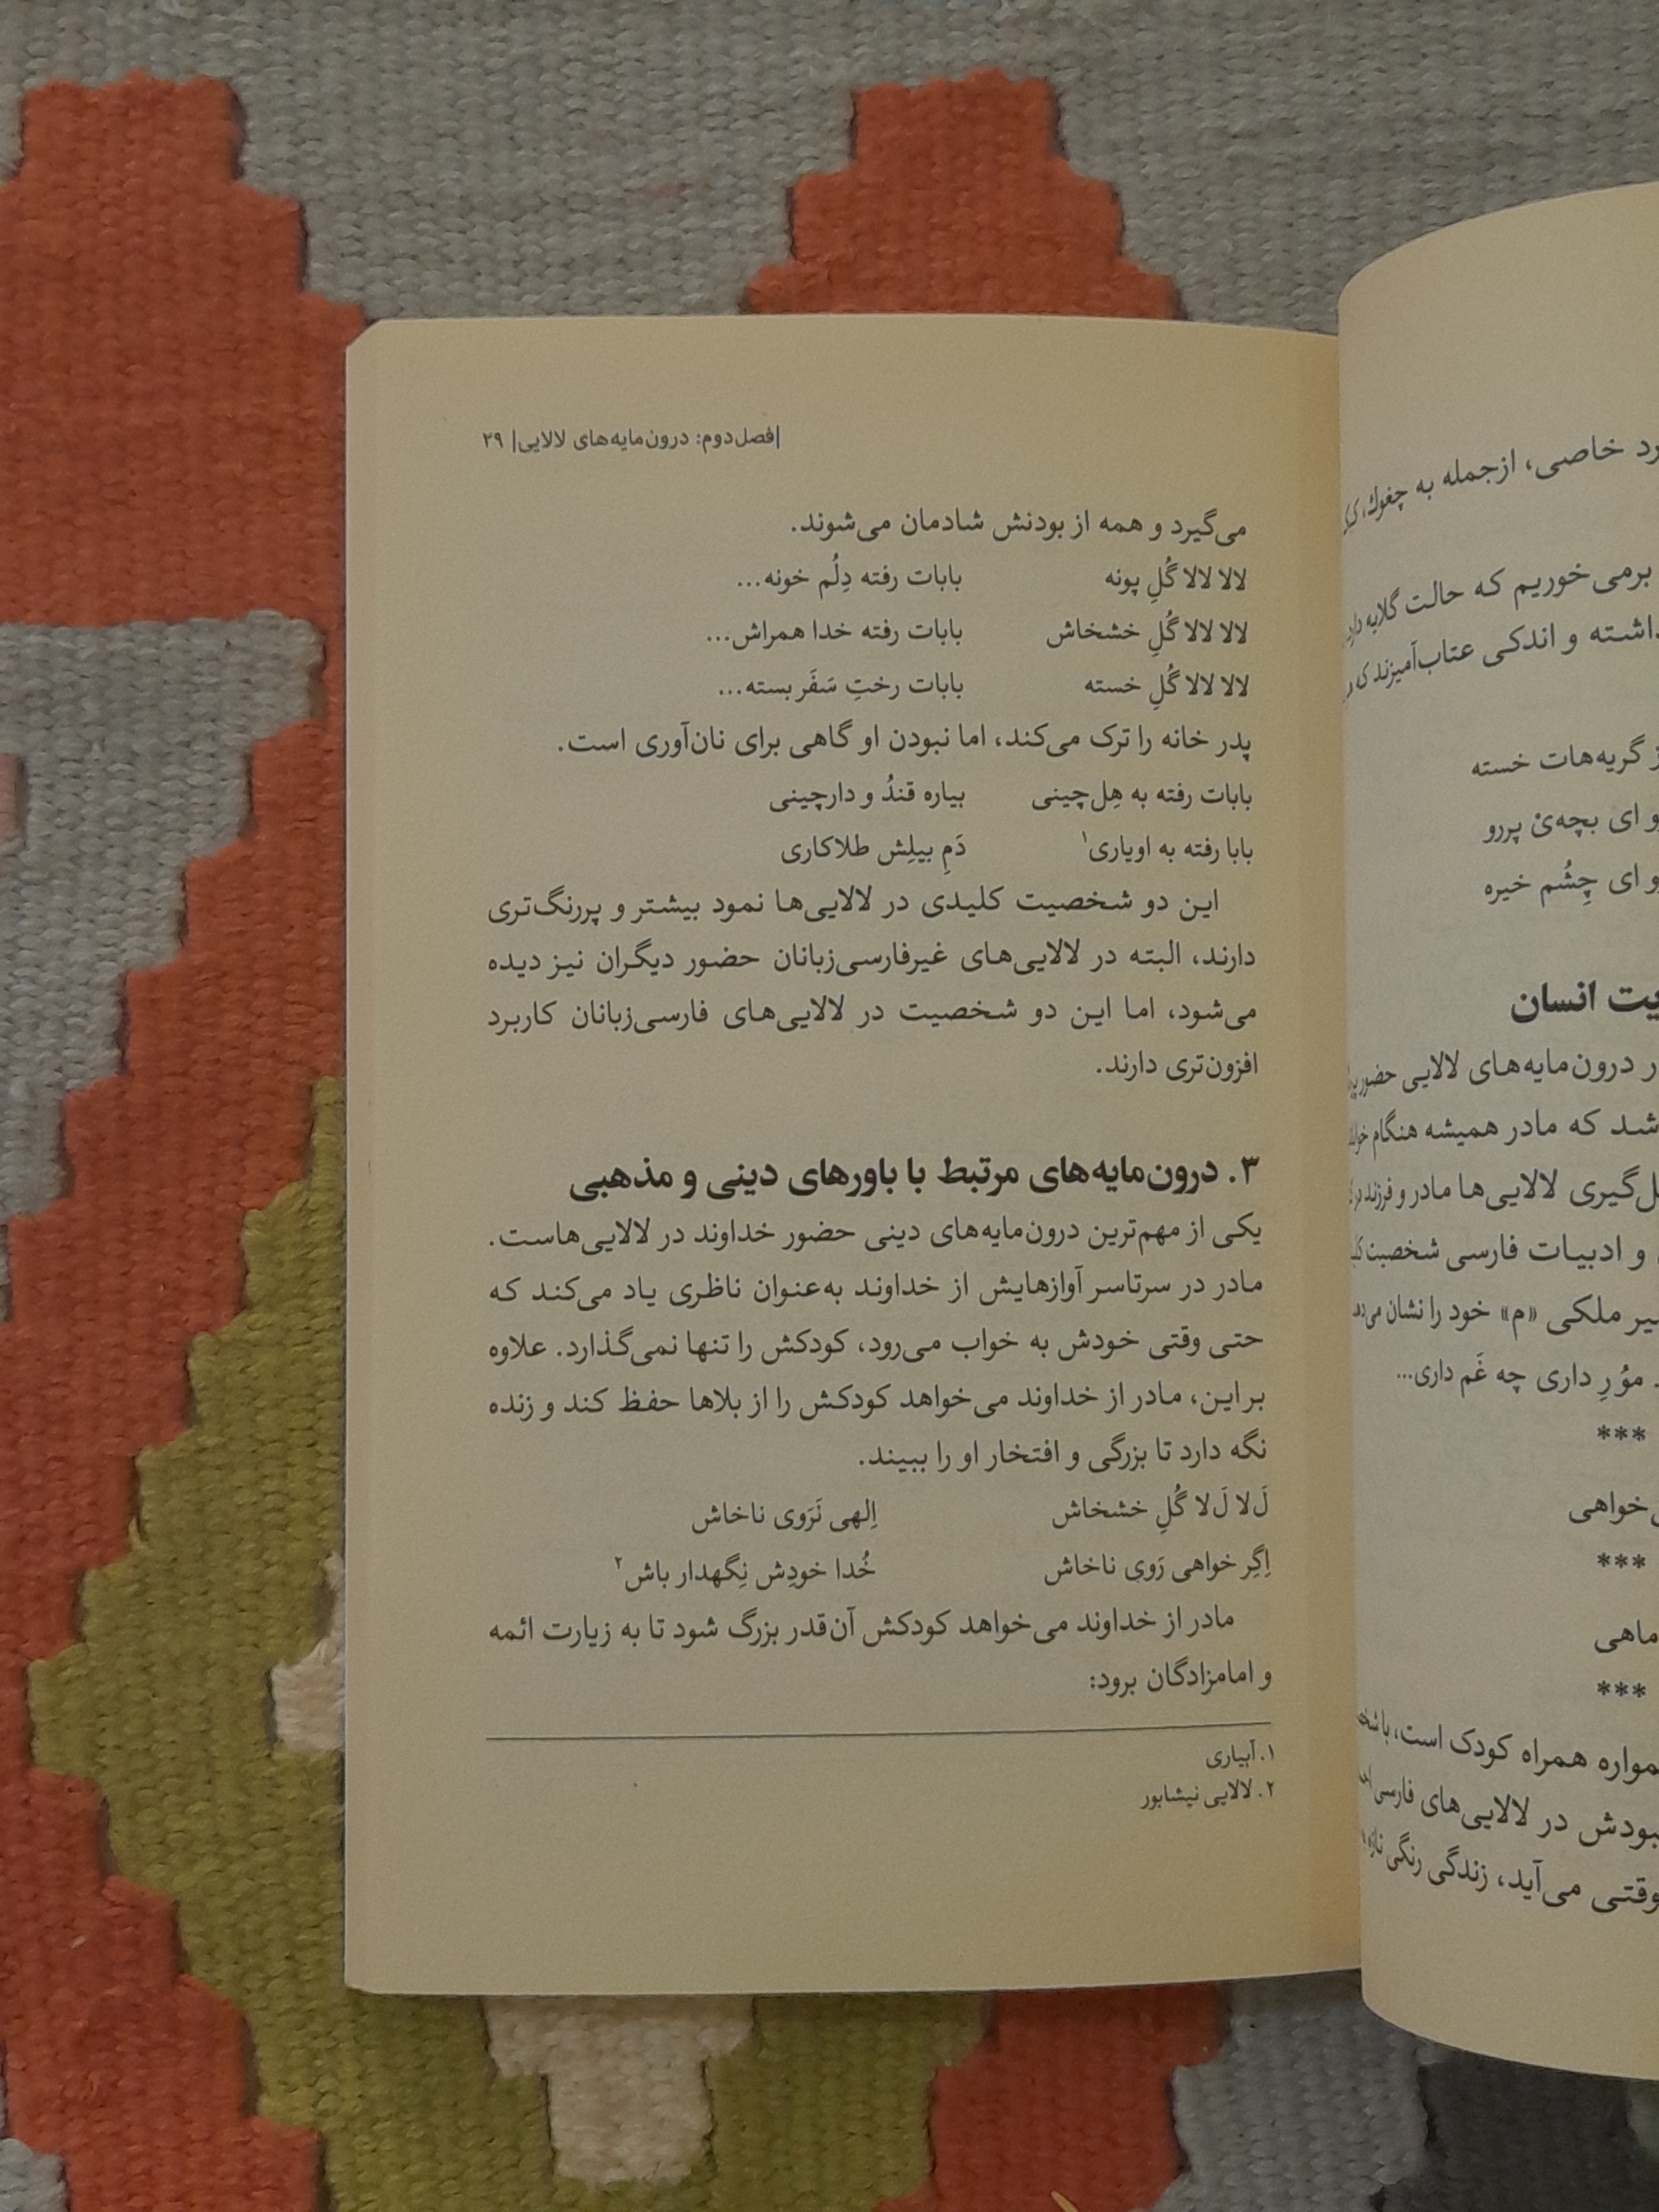 رد خاصی، ازجمله به چغوک،
برمی‌خوریم که حالت گلایه دارد
داشته و اندکی عتاب‌آمیزند
ز گریه‌هات خسته
و ای بچه‌یْ پررو
و ای چِشُم خیره
یت انسان
ر درون‌مایه‌های لالایی حضور
شد که مادر همیشه هنگام
ل‌گیری لالایی‌ها مادر و فرزند
و ادبیات فارسی شخصیت
یر ملکی «م» خود را نشان می‌دهد
موُرِ داری چه غَم داری...
***
خواهی
***
ماهی
***
مواره همراه کودک است، با
بودش در لالایی‌های فارسی
وقتی می‌آید، زندگی رنگی تازه
|فصل دوم: درون‌مایه‌های لالایی| ۲۹
می‌گیرد و همه از بودنش شادمان می‌شوند.
لالا لالا گُلِ پونه بابات رفته دِلُم خونه...
لالا لالا گُلِ خشخاش بابات رفته خدا همراش...
لالا لالا گُلِ خسته بابات رختِ سَفَر بسته...
پدر خانه را ترک می‌کند، اما نبودن او گاهی برای نان‌آوری است.
بابات رفته به هِل‌چینی بیاره قندُ و دارچینی
بابا رفته به اویاری۱ دَمِ بیلِش طلاکاری
این دو شخصیت کلیدی در لالایی‌ها نمود بیشتر و پررنگ‌تری
دارند، البته در لالایی‌های غیرفارسی‌زبانان حضور دیگران نیز دیده
می‌شود، اما این دو شخصیت در لالایی‌های فارسی‌زبانان کاربرد
افزون‌تری دارند.
۳. درون‌مایه‌های مرتبط با باورهای دینی و مذهبی
یکی از مهم‌ترین درون‌مایه‌های دینی حضور خداوند در لالایی‌هاست.
مادر در سرتاسر آوازهایش از خداوند به‌عنوان ناظری یاد می‌کند که
حتی وقتی خودش به خواب می‌رود، کودکش را تنها نمی‌گذارد. علاوه
بر این، مادر از خداوند می‌خواهد کودکش را از بلاها حفظ کند و زنده
نگه دارد تا بزرگی و افتخار او را ببیند.
لَ‌لا لَ‌لا گُلِ خشخاش اِلهی نَرَوی ناخاش
اِگِر خواهی رَوی ناخاش خُدا خودِش نِگهدار باش۲
مادر از خداوند می‌خواهد کودکش آن‌قدر بزرگ شود تا به زیارت ائمه
و امامزادگان برود:
۱. آبیاری
۲. لالایی نیشابور